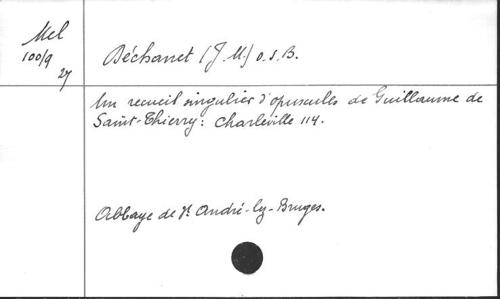 Mel
100/9
27
Déchanet (J.M.) O.S.B.
Un recueil singulier d'opuscules de Guillaume de
Saint-Thierry: Charleville 114.
Abbaye de St André-lez-Bruges.